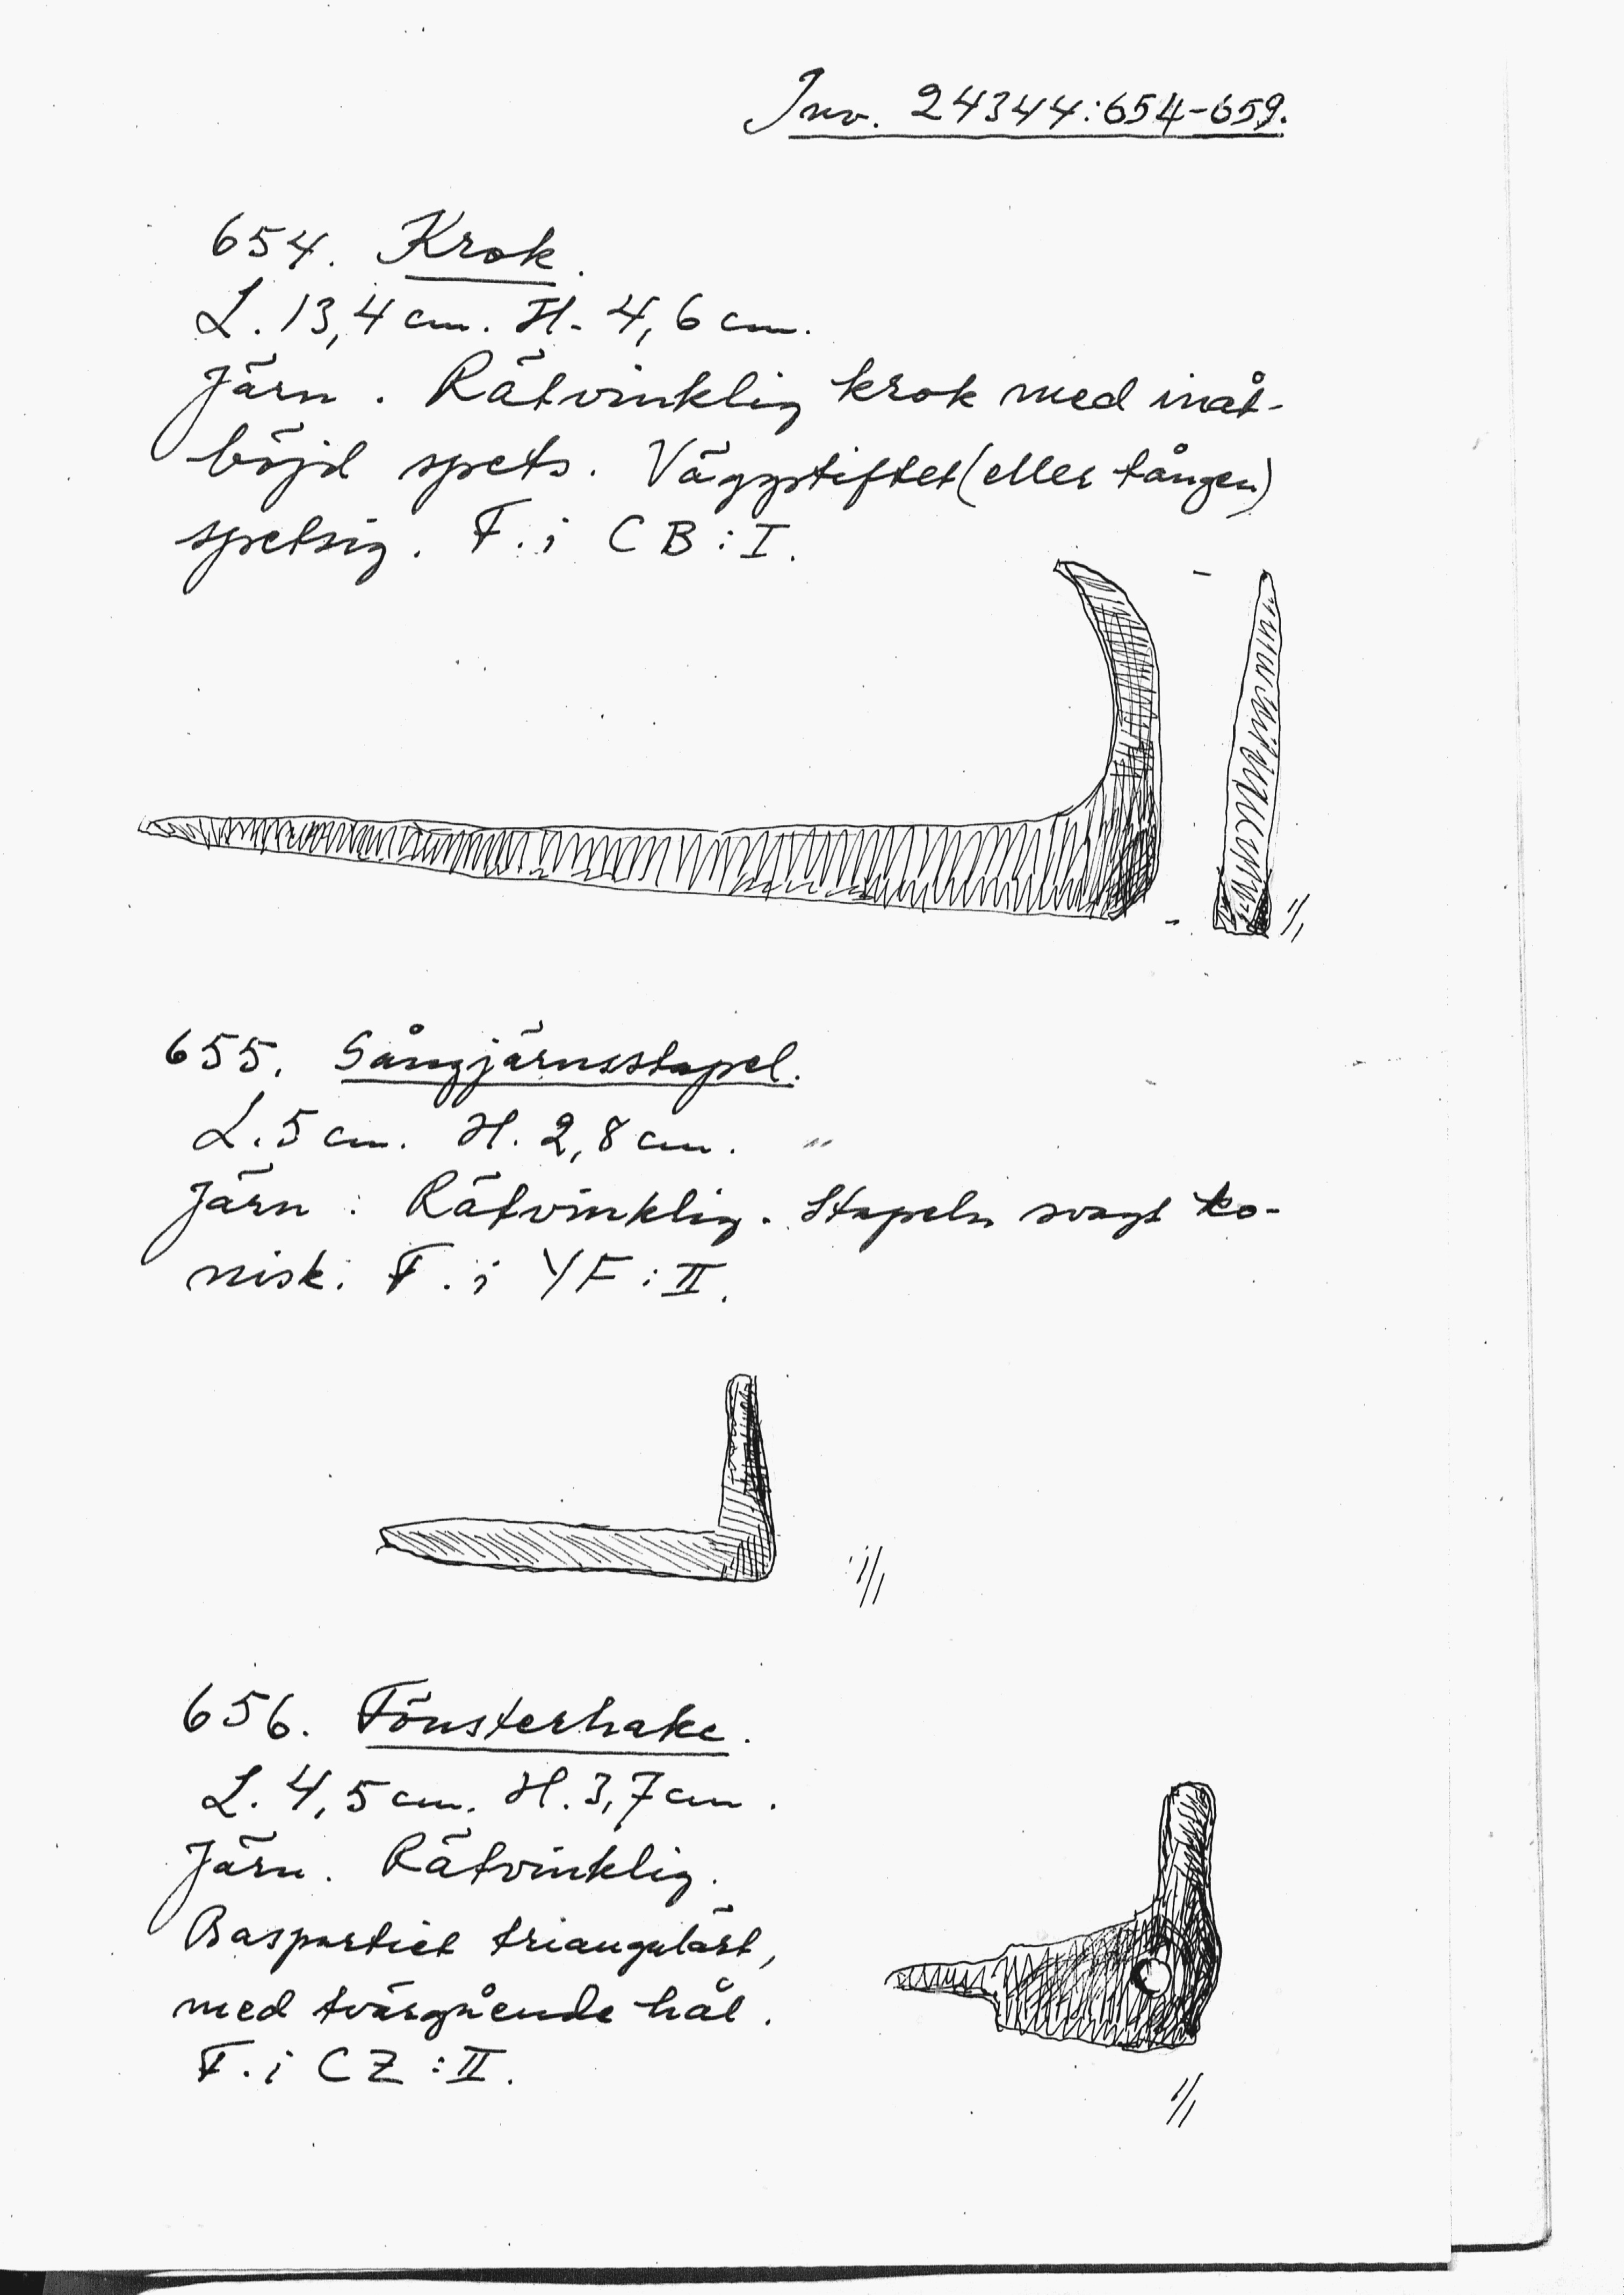 Inv. 24344:654-659.
654. Krok.
L. 13,4 cm. H. 4,6 cm.
Järn. Rätvinklig krok med inåt-
böjd spets. Väggstiftet (eller tången)
spetsig. F. i CB:I.
1/1
655. Gångjärnsstapel.
L. 5 cm. H. 2,8 cm.
Järn. Rätvinklig. Stapeln svagt ko-
nisk. F. i YF:II.
1/1
656. Fönsterhake.
L. 4,5 cm. H. 3,7 cm.
Järn. Rätvinklig.
Baspartiet triangulärt,
med tvärgående hål.
F. i CZ:II.
1/1